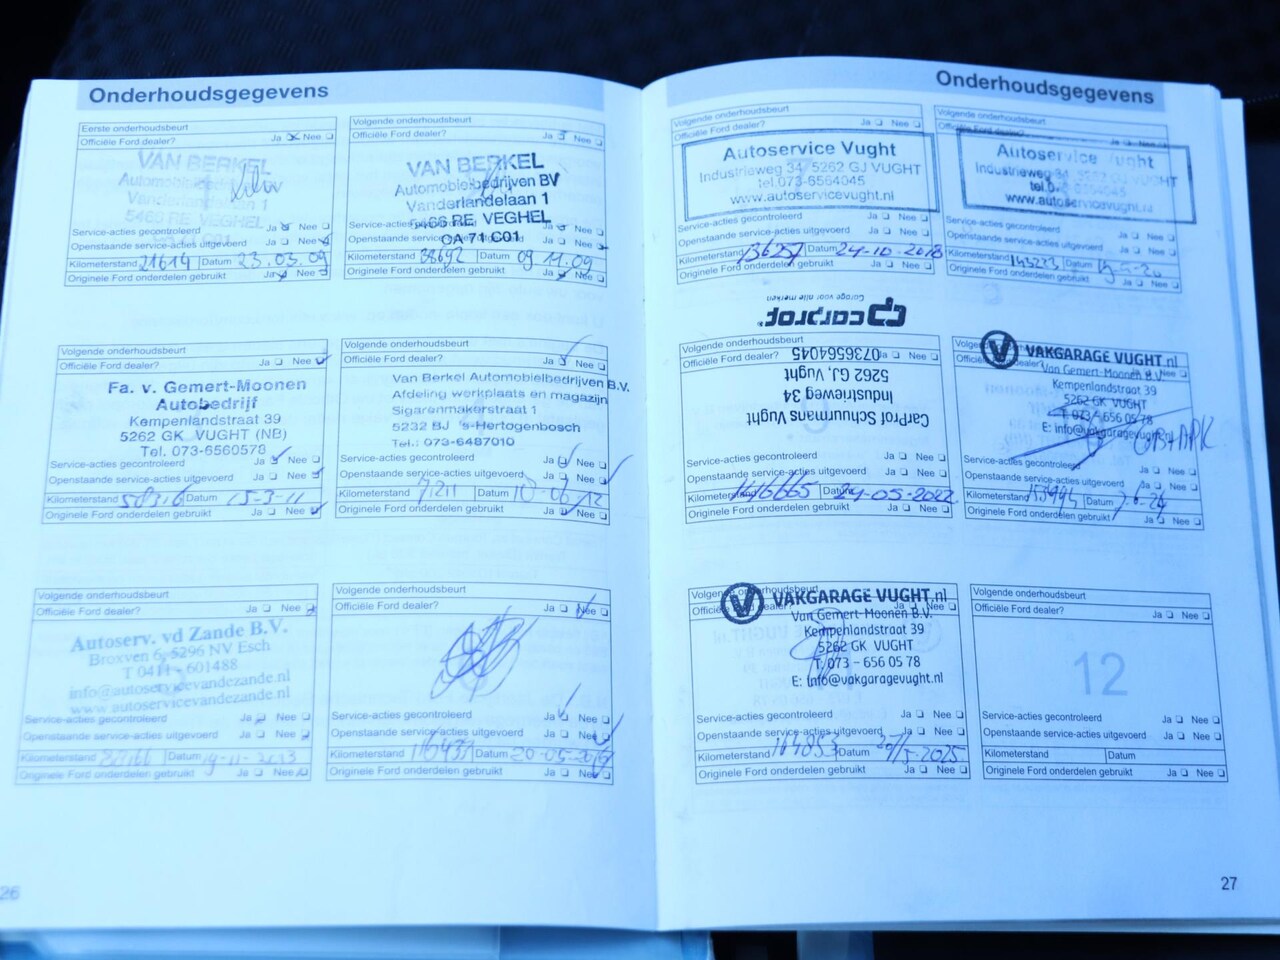 Onderhoudsgegevens
Eerste onderhoudsbeurt
Officiële Ford dealer? Ja Nee
VAN BERKEL
Automobielbedrijven BV
Vanderlandelaan 1
5466 RE VEGHEL
Service-acties gecontroleerd Ja Nee
Openstaande service-acties uitgevoerd Ja Nee
Kilometerstand 21614 Datum 23.03.09
Originele Ford onderdelen gebruikt Ja Nee
Volgende onderhoudsbeurt
Officiële Ford dealer? Ja Nee
VAN BERKEL
Automobielbedrijven BV
Vanderlandelaan 1
5466 RE VEGHEL
CA 71 C01
Service-acties gecontroleerd Ja Nee
Openstaande service-acties uitgevoerd Ja Nee
Kilometerstand 38692 Datum 09.11.09
Originele Ford onderdelen gebruikt Ja Nee
Volgende onderhoudsbeurt
Officiële Ford dealer? Ja Nee
Fa. v. Gemert-Moonen
Autobedrijf
Kempenlandstraat 39
5262 GK VUGHT (NB)
Tel. 073-6560578
Service-acties gecontroleerd Ja Nee
Openstaande service-acties uitgevoerd Ja Nee
Kilometerstand 58916 Datum 15-3-11
Originele Ford onderdelen gebruikt Ja Nee
Volgende onderhoudsbeurt
Officiële Ford dealer? Ja Nee
Van Berkel Automobielbedrijven B.V.
Afdeling werkplaats en magazijn
Sigarenmakerstraat 1
5232 BJ 's-Hertogenbosch
Tel.: 073-6487010
Service-acties gecontroleerd Ja Nee
Openstaande service-acties uitgevoerd Ja Nee
Kilometerstand Datum 10-06-12
Originele Ford onderdelen gebruikt Ja Nee
Volgende onderhoudsbeurt
Officiële Ford dealer? Ja Nee
Autoserv. vd Zande B.V.
Broxven 6, 5296 NV Esch
T 0411 - 601488
info@autoservicevandezande.nl
www.autoservicevandezande.nl
Service-acties gecontroleerd Ja Nee
Openstaande service-acties uitgevoerd Ja Nee
Kilometerstand Datum 19-11-2013
Originele Ford onderdelen gebruikt Ja Nee
Volgende onderhoudsbeurt
Officiële Ford dealer? Ja Nee
Service-acties gecontroleerd Ja Nee
Openstaande service-acties uitgevoerd Ja Nee
Kilometerstand 116439 Datum
Originele Ford onderdelen gebruikt Ja Nee
26
Onderhoudsgegevens
Volgende onderhoudsbeurt
Officiële Ford dealer? Ja Nee
Autoservice Vught
Industrieweg 34, 5262 GJ VUGHT
tel.073-6564045
www.autoservicevught.nl
Service-acties gecontroleerd Ja Nee
Openstaande service-acties uitgevoerd Ja Nee
Kilometerstand 136257 Datum 24-10-2018
Originele Ford onderdelen gebruikt Ja Nee
Autoservice Vught
Industrieweg 34, 5262 GJ VUGHT
www.autoservicevught.nl
Service-acties gecontroleerd Ja Nee
Openstaande service-acties uitgevoerd Ja Nee
Kilometerstand 143223 Datum
Originele Ford onderdelen gebruikt Ja Nee
carprof
Garage voor alle merken
Volgende onderhoudsbeurt
Officiële Ford dealer? Ja Nee
CarProf Schuurmans Vught
Industrieweg 34
5262 GJ, Vught
0736564045
Service-acties gecontroleerd Ja Nee
Openstaande service-acties uitgevoerd Ja Nee
Kilometerstand 146665 Datum 24-05-2022
Originele Ford onderdelen gebruikt Ja Nee
VAKGARAGE VUGHT.nl
Van Gemert-Moonen B.V.
Kempenlandstraat 39
5262 GK VUGHT
T: 073 - 656 05 78
E: info@vakgaragevught.nl
APK
Service-acties gecontroleerd Ja Nee
Openstaande service-acties uitgevoerd Ja Nee
Kilometerstand Datum
Originele Ford onderdelen gebruikt Ja Nee
Volgende onderhoudsbeurt
VAKGARAGE VUGHT.nl
Van Gemert-Moonen B.V.
Kempenlandstraat 39
5262 GK VUGHT
T: 073 - 656 05 78
E: info@vakgaragevught.nl
Service-acties gecontroleerd Ja Nee
Openstaande service-acties uitgevoerd Ja Nee
Kilometerstand 164853 Datum
Originele Ford onderdelen gebruikt Ja Nee
Volgende onderhoudsbeurt
Officiële Ford dealer? Ja Nee
12
Service-acties gecontroleerd Ja Nee
Openstaande service-acties uitgevoerd Ja Nee
Kilometerstand Datum
Originele Ford onderdelen gebruikt Ja Nee
27